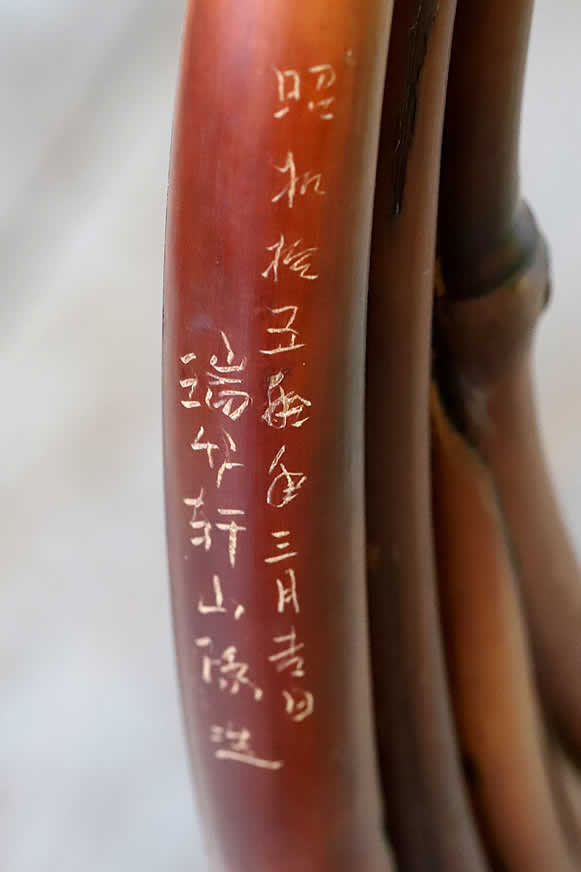 昭和拾五年三月吉日
瑞竹軒山造